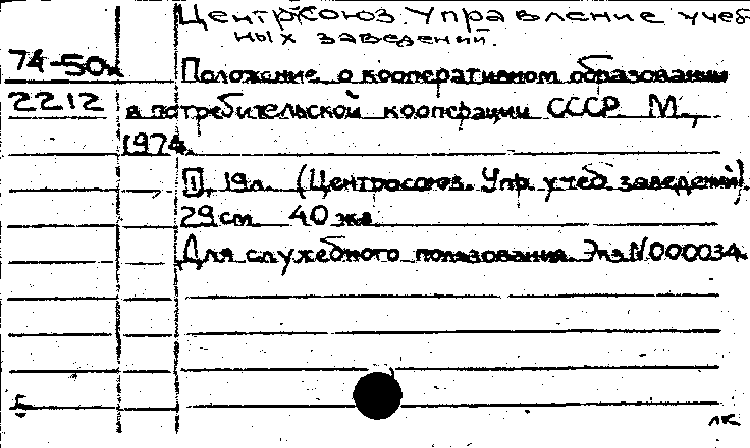 Центрсоюз. Управление учеб
ных заведений.
74-50к
Положение о кооперативном образовании
2212
в потребительской кооперации СССР. М.,
1974.
[1], 19л. (Центросоюз. Упр. учеб. заведений).
29см. 40 экз.
Для служебного пользования. Экз.N000034.
Б
лк